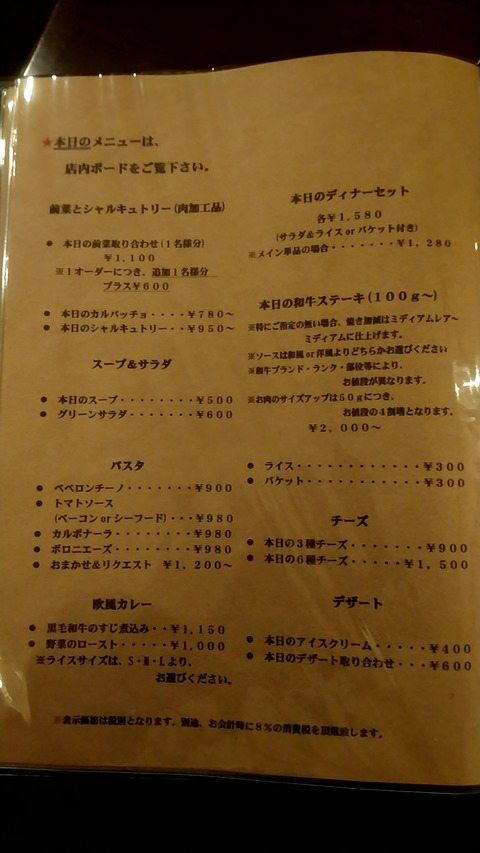 ★本日のメニューは、
店内ボードをご覧下さい。
前菜とシャルキュトリー(肉加工品)
● 本日の前菜取り合わせ(1名様分)
￥1,100
※1オーダーにつき、追加1名様分
プラス￥600
● 本日のカルパッチョ・・・・￥780～
● 本日のシャルキュトリー・・￥950～
スープ＆サラダ
● 本日のスープ・・・・・・・・￥500
● グリーンサラダ・・・・・・・￥600
パスタ
● ペペロンチーノ・・・・・・・￥900
● トマトソース
(ベーコン or シーフード)・・・￥980
● カルボナーラ・・・・・・・・￥980
● ボロニエーズ・・・・・・・・￥980
● おまかせ＆リクエスト ￥1,200～
欧風カレー
● 黒毛和牛のすじ煮込み・・￥1,150
● 野菜のロースト・・・・・￥1,000
※ライスサイズは、S・M・Lより、
お選びください。
本日のディナーセット
各￥1,580
(サラダ＆ライス or バケット付き)
※メイン単品の場合・・・・・・・￥1,280
本日の和牛ステーキ(100g～)
※特にご指定の無い場合、焼き加減はミディアムレア～
ミディアムに仕上げます。
※ソースは和風 or 洋風よりどちらかお選びください
※和牛ブランド・ランク・部位等により、
お値段が異なります。
※お肉のサイズアップは50gにつき、
お値段の4割増となります。
￥2,000～
● ライス・・・・・・・・・・・・￥300
● バケット・・・・・・・・・・・￥300
チーズ
● 本日の3種チーズ・・・・・・・￥900
● 本日の6種チーズ・・・・・￥1,500
デザート
● 本日のアイスクリーム・・・・・￥400
● 本日のデザート取り合わせ・・・￥600
※表示価格は税別となります。別途、お会計時に8%の消費税を頂戴致します。